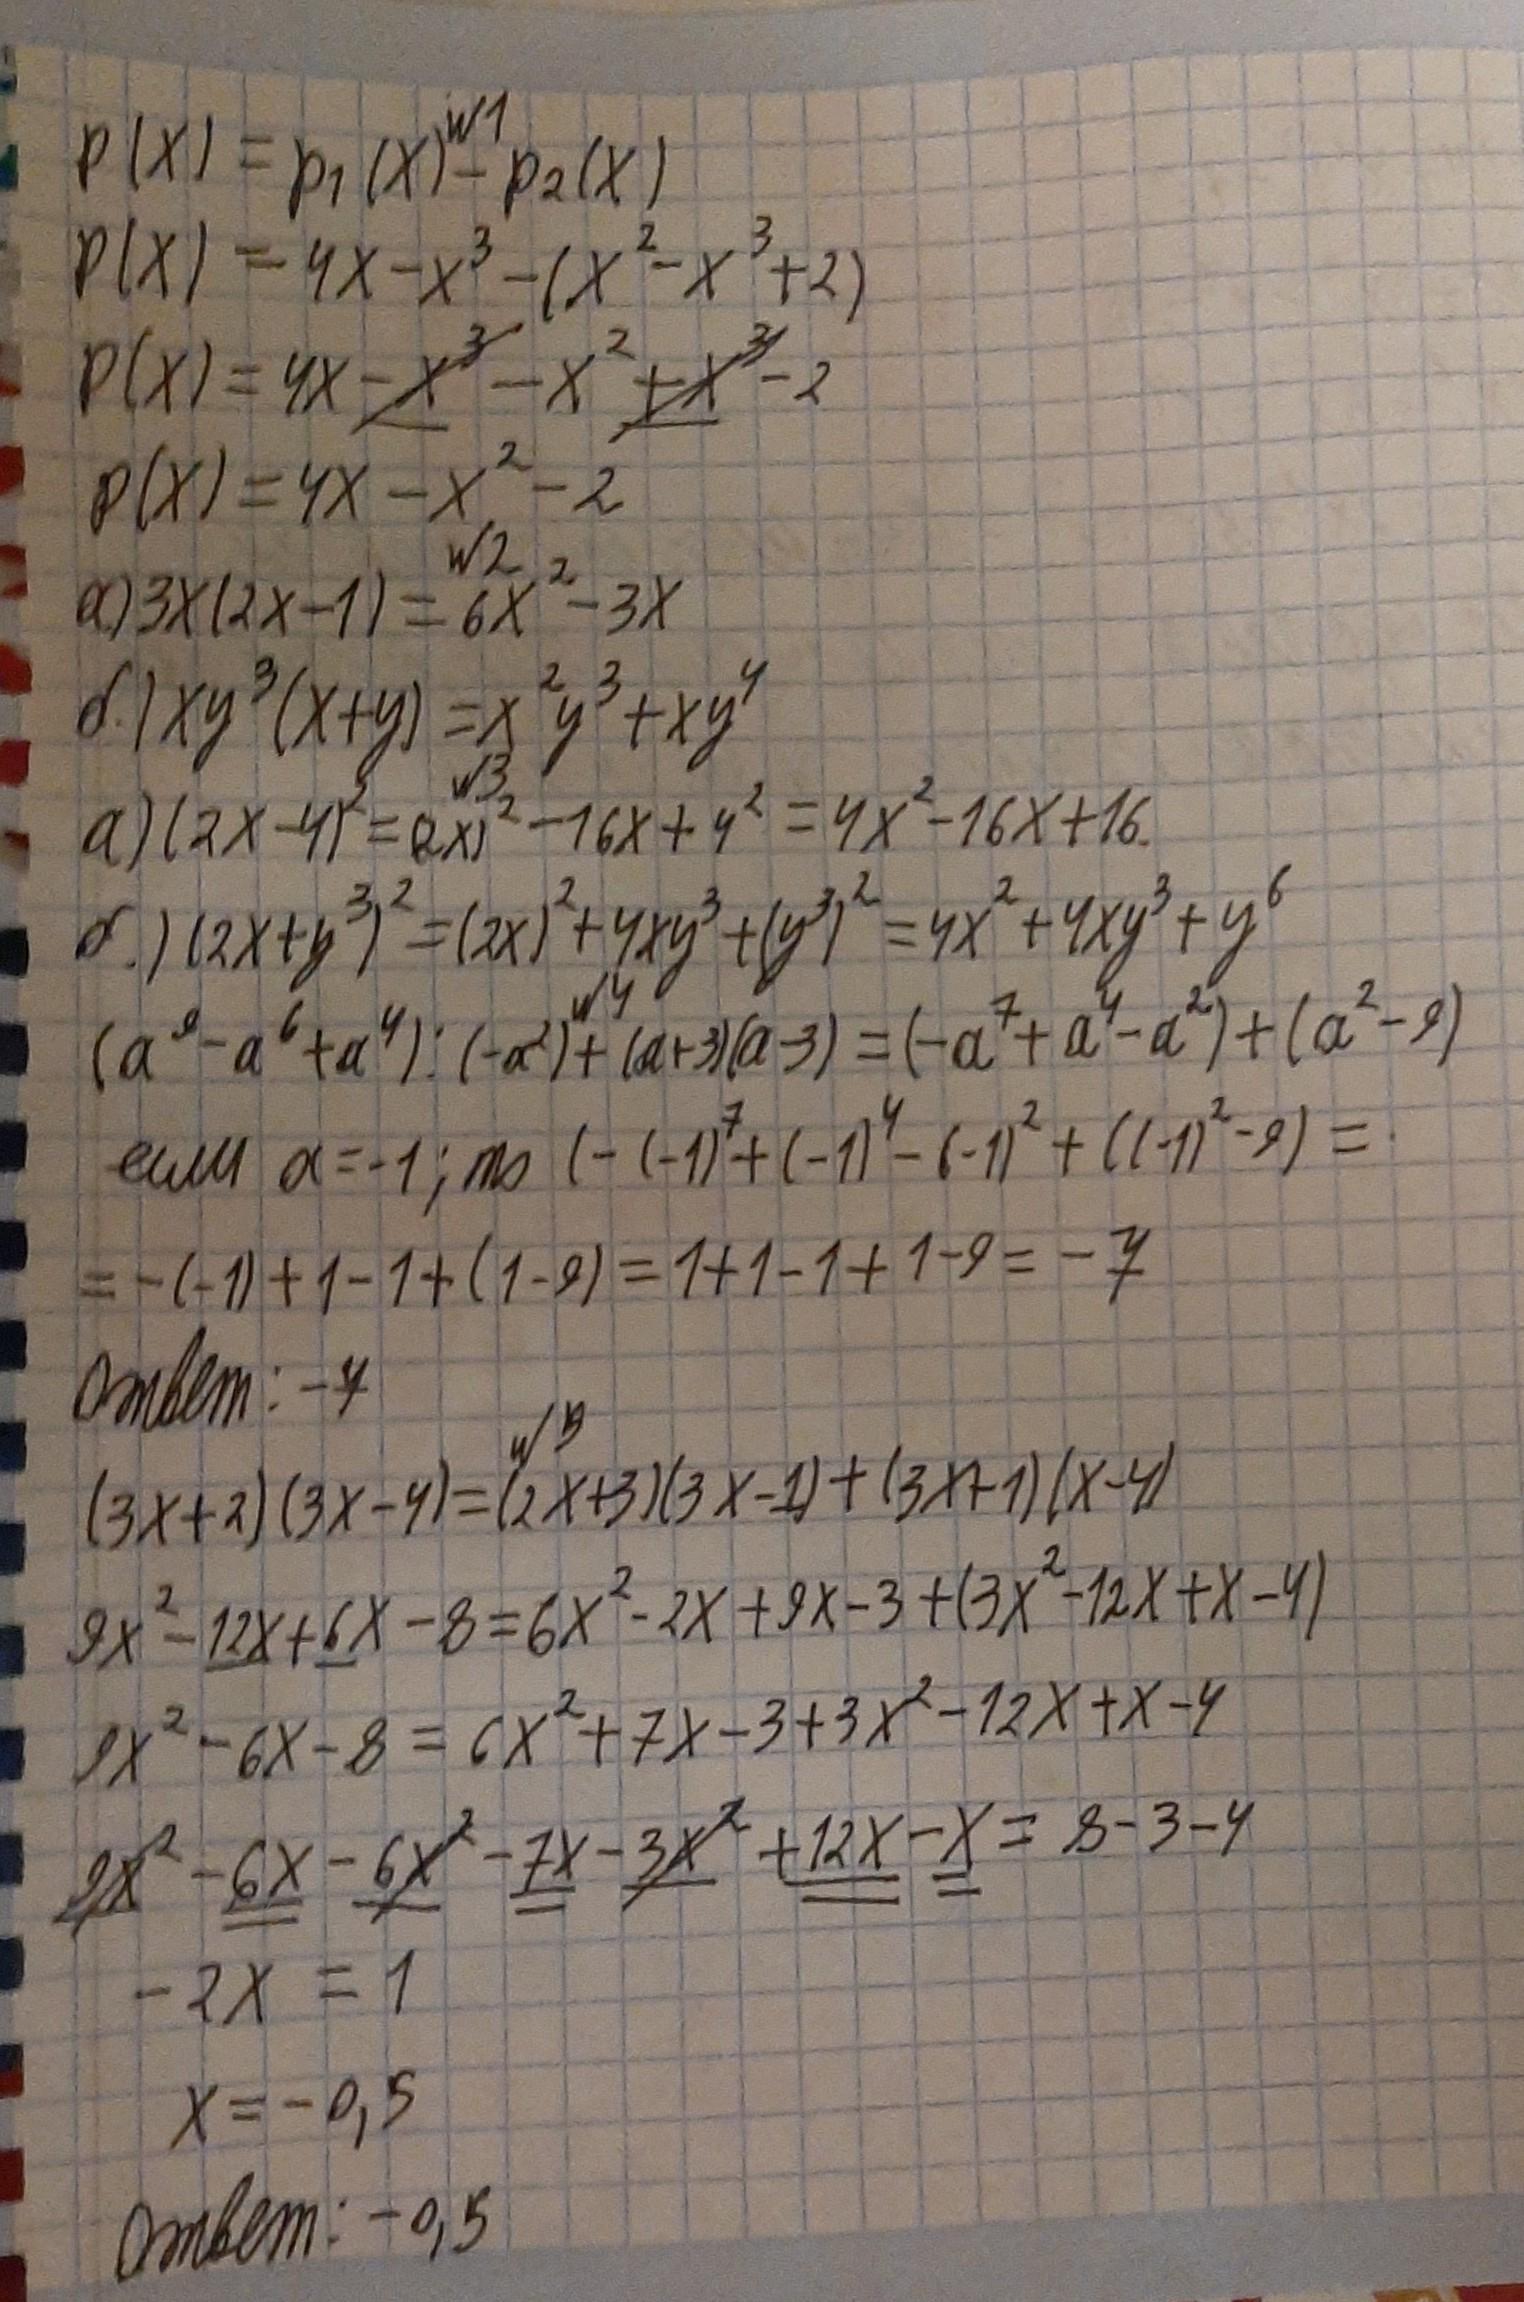 №1
p(x) = p₁(x) - p₂(x)
p(x) = 4x - x³ - (x² - x³ + 2)
p(x) = 4x - x³ - x² + x³ - 2
p(x) = 4x - x² - 2
№2
а) 3x(2x-1) = 6x² - 3x
б.) xy³(x+y) = x²y³ + xy⁴
№3
а) (2x-4)² = (2x)² - 16x + 4² = 4x² - 16x + 16.
б.) (2x+y³)² = (2x)² + 4xy³ + (y³)² = 4x² + 4xy³ + y⁶
№4
(a⁹ - a⁶ + a⁴) : (-a²) + (a+3)(a-3) = (-a⁷ + a⁴ - a²) + (a² - 9)
если a = -1; то (-(-1)⁷ + (-1)⁴ - (-1)² + ((-1)² - 9) =
= -(-1) + 1 - 1 + (1-9) = 1 + 1 - 1 + 1 - 9 = -7
Ответ: -7
№5
(3x+2)(3x-4) = (2x+3)(3x-1) + (3x+1)(x-4)
9x² - 12x + 6x - 8 = 6x² - 2x + 9x - 3 + (3x² - 12x + x - 4)
9x² - 6x - 8 = 6x² + 7x - 3 + 3x² - 12x + x - 4
9x² - 6x - 6x² - 7x - 3x² + 12x - x = 8 - 3 - 4
-2x = 1
x = -0,5
Ответ: -0,5